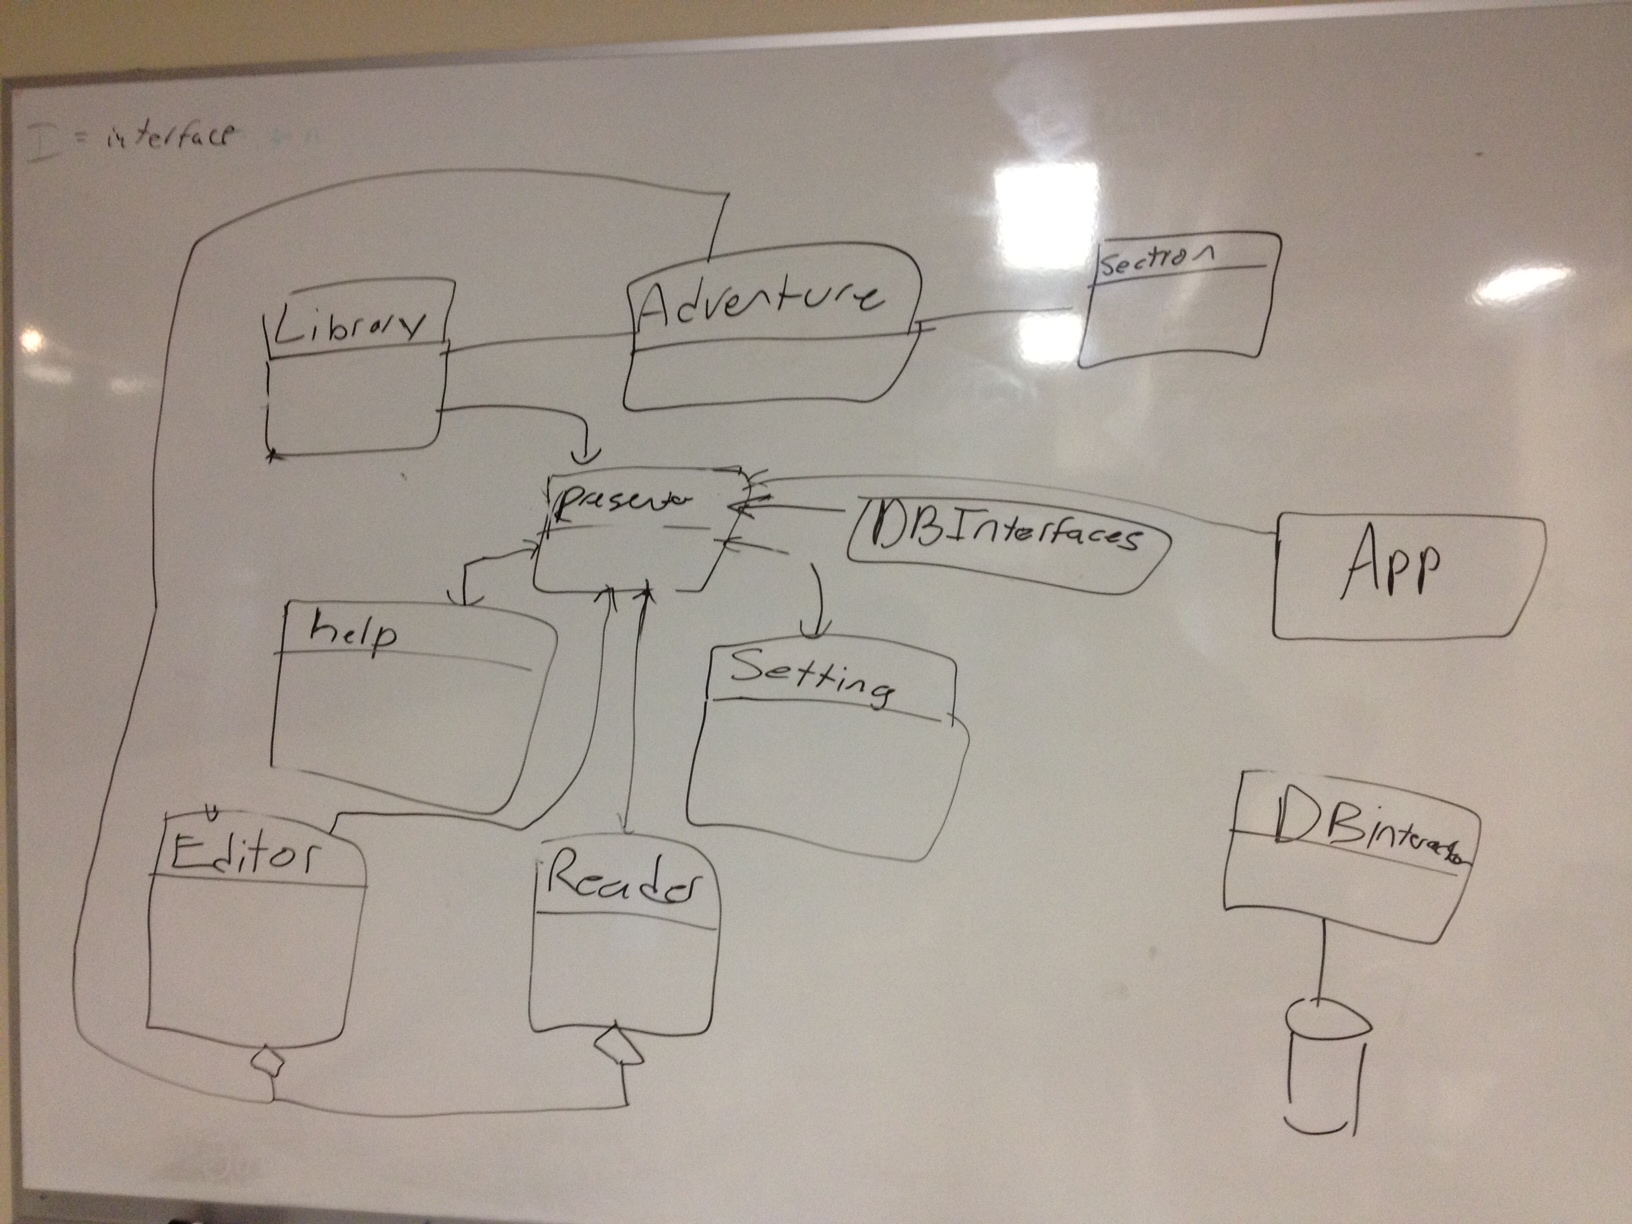 I = interface
Library
Adventure
Section
presenter
DBInterfaces
App
help
Setting
Editor
Reader
DBinteractor